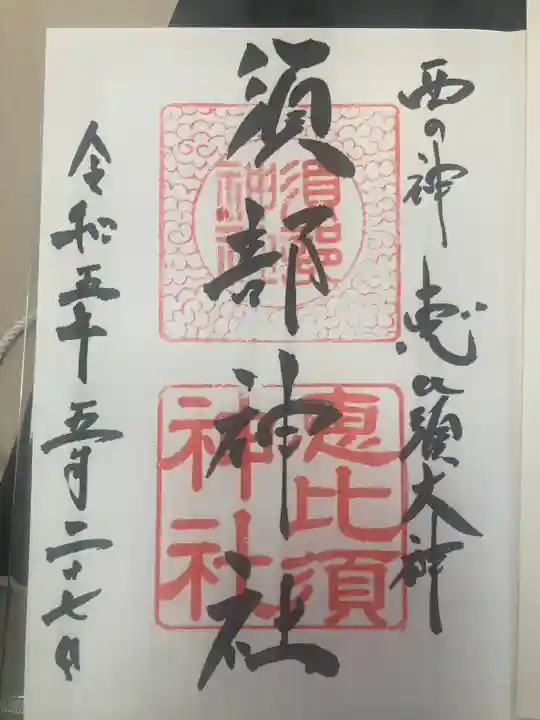 西の神 恵比須大神
須部神社
令和五年五月二十七日
須部
神社
恵比須
神社